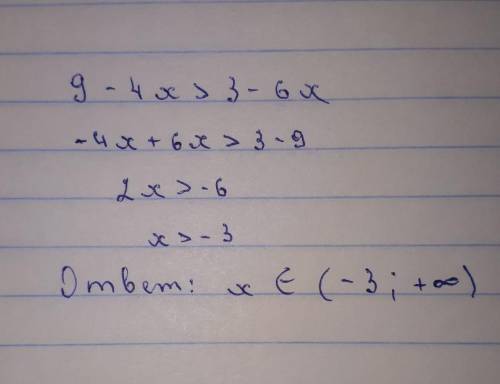 9 - 4x > 3 - 6x
-4x + 6x > 3 - 9
2x > -6
x > -3
Ответ: x ∈ (-3; +∞)